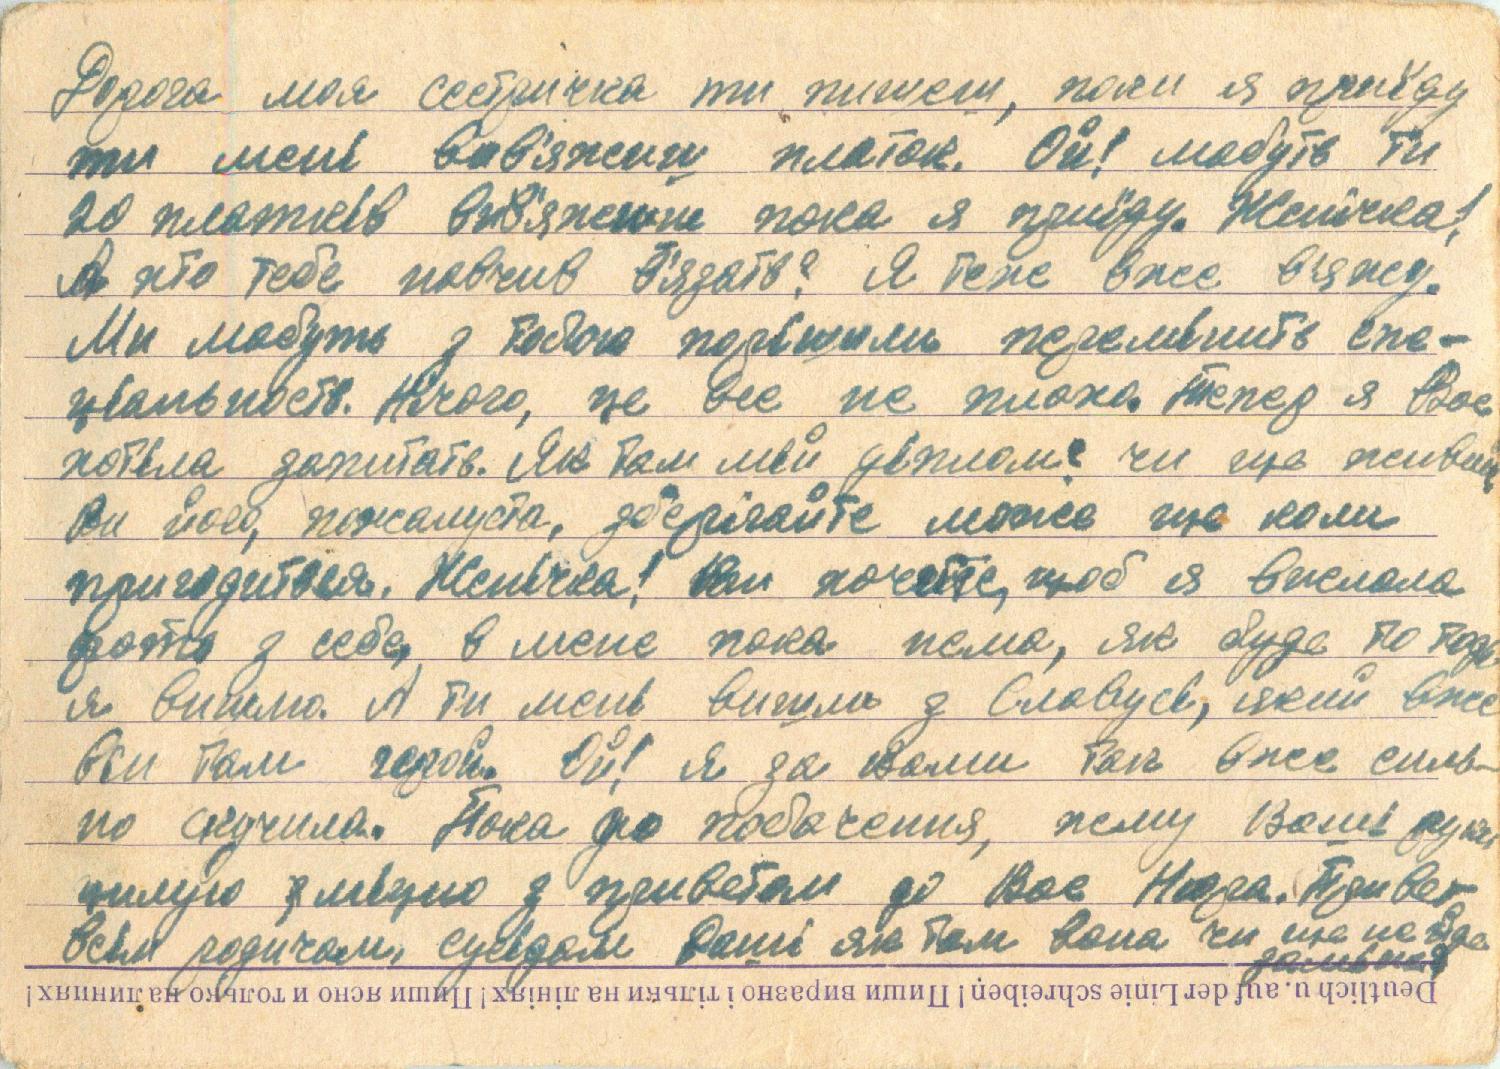 Дорога моя сестричка ти пишеш, поки я приїду
ти мені вив'яжиш платок. Ой! мабуть ти
20 платків вив'яжиш пока я приїду. Женічка!
А хто тебе навчив в'язать? Я теже вже в'яжу.
Ми мабуть з тобою порішили перемінить спе-
ціальность. Нічого, це все не плохо. Тепер я Вас
хотіла запитать. Як там мій діплом? чи ще живий,
Ви його, пожалуста, зберігайте може ще коли
пригодиться. Женічка! Ви хочете, щоб я вислала
фото з себе, в мене пока нема, як буде то тоді
я вишлю. А ти мені вишли з Славусі, який вже
Він там герой. Ой! я за Вами так вже силь-
но скучила. Пока до побачення, жму Ваші руки
цилую з міцно з приветом до Вас Нюра. Привет
всім родичам, сусідам Даші як там вона чи ще не йде
заміж
Deutlich u. auf der Linie schreiben! Пиши виразно і тільки на лініях! Пиши ясно и только на линиях!